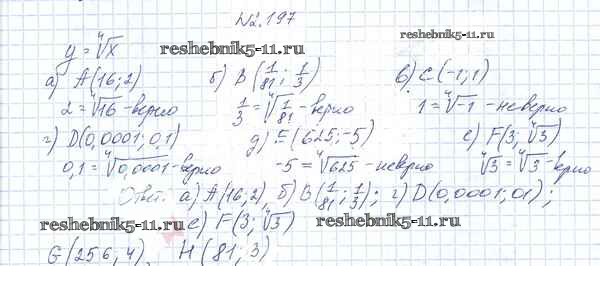 №2.197
y = ∜x
reshebnik5-11.ru
reshebnik5-11.ru
а) A(16; 2) б) B(1/81; 1/3) в) C(-1; 1)
2 = ∜16 - верно 1/3 = ∜(1/81) - верно 1 = ∜-1 - неверно
г) D(0,0001; 0,1) д) E(625; -5) е) F(3; ∜3)
0,1 = ∜0,0001 - верно -5 = ∜625 - неверно ∜3 = ∜3 - верно
Ответ: а) A(16; 2), б) B(1/81; 1/3); г) D(0,0001; 0,1);
reshebnik5-11.ru е) F(3; ∜3) reshebnik5-11.ru
G(256; 4), H(81; 3)